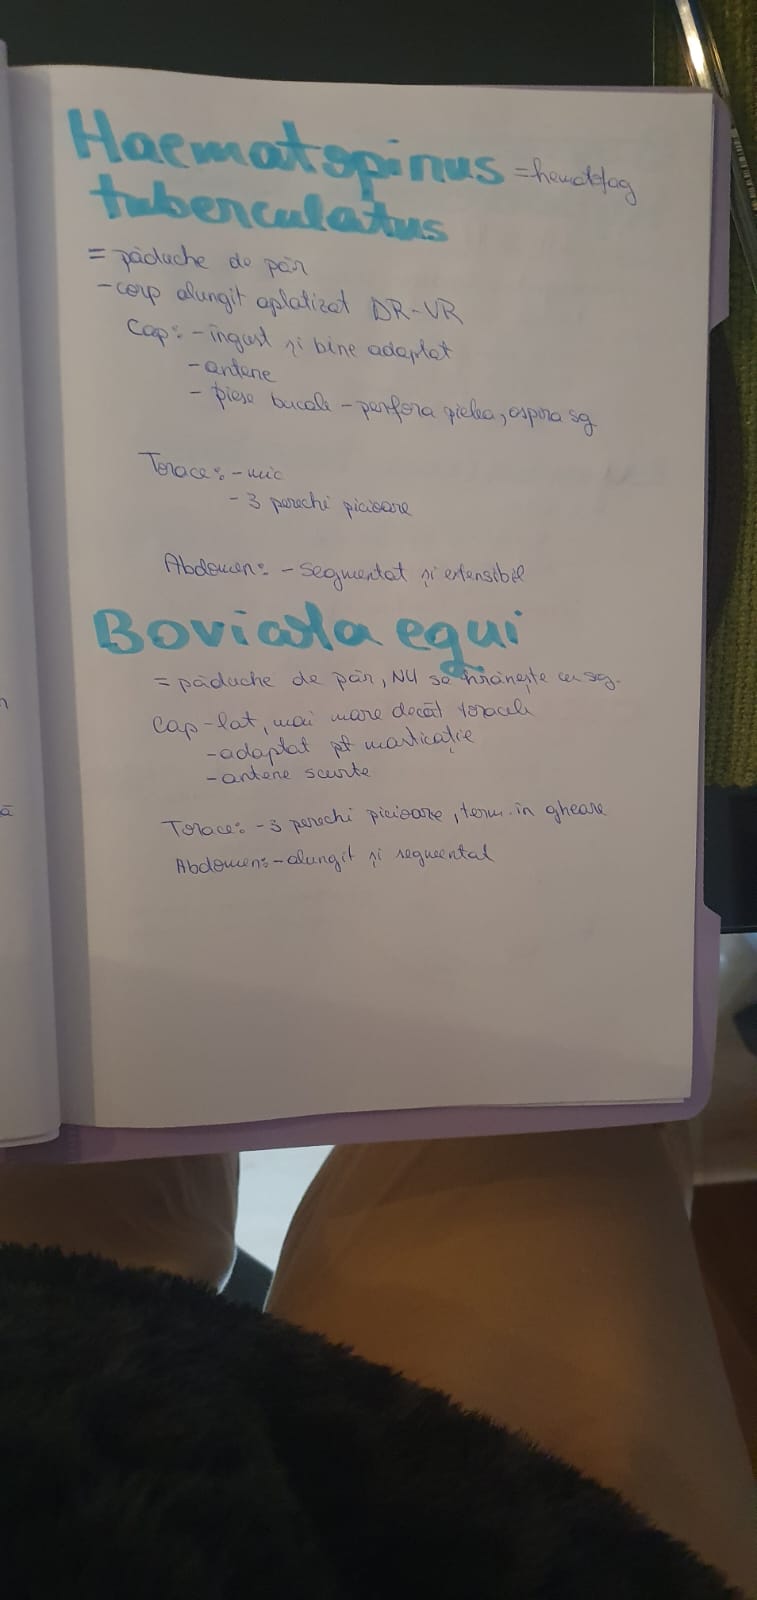 Haematopinus = hematofag
tuberculatus
= păduche de păr
- corp alungit aplatizat DR-VR
Cap: - îngust și bine adaptat
- antene
- piese bucale - perfora pielea, aspira sg
Torace: - mic
- 3 perechi picioare
Abdomen: - segmentat și extensibil
Bovicola equi
= păduche de păr, NU se hrănește cu sg.
Cap - lat, mai mare decât toracele
- adaptat pt masticație
- antene scurte
Torace: - 3 perechi picioare, term. în gheare
Abdomen: - alungit și segmentat
n
ă